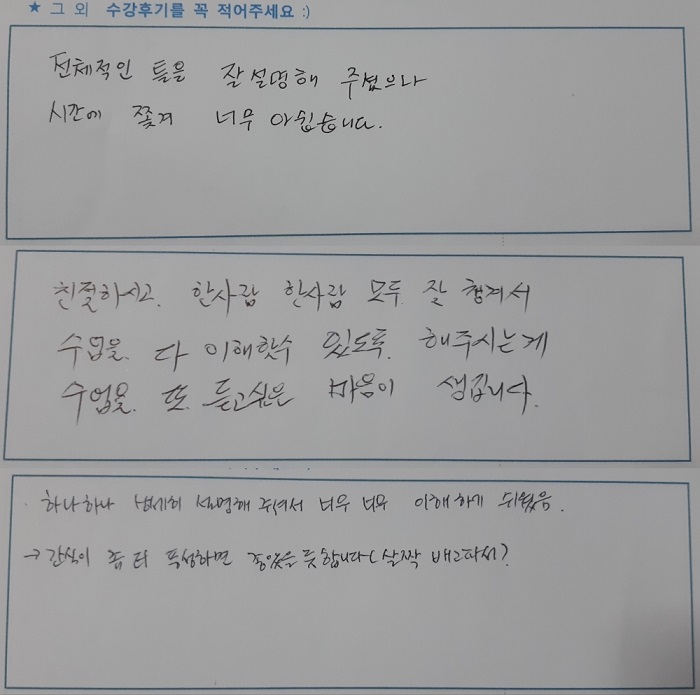 ★ 그 외 수강후기를 꼭 적어주세요 :)
전체적인 틀을 잘 설명해 주셨으나
시간에 쫓겨 너무 아쉽습니다.
친절하시고. 한사람 한사람 모두 잘 챙겨서
수업을. 다 이해할수 있도록. 해주시는게
수업을. 또. 듣고싶은 마음이 생깁니다.
하나하나 상세히 설명해 주셔서 너무 너무 이해하기 쉬웠음.
→ 간식이 좀 더 풍성하면 좋았을 듯 합니다 (살짝 배고파서?